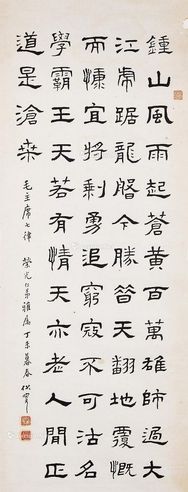 鍾山風雨起蒼黃百萬雄師過大
江虎踞龍盤今勝昔天翻地覆慨
而慷宜將剩勇追窮寇不可沽名
學霸王天若有情天亦老人間正
道是滄桑
毛主席七律 光仁弟雅屬 丁未暮春